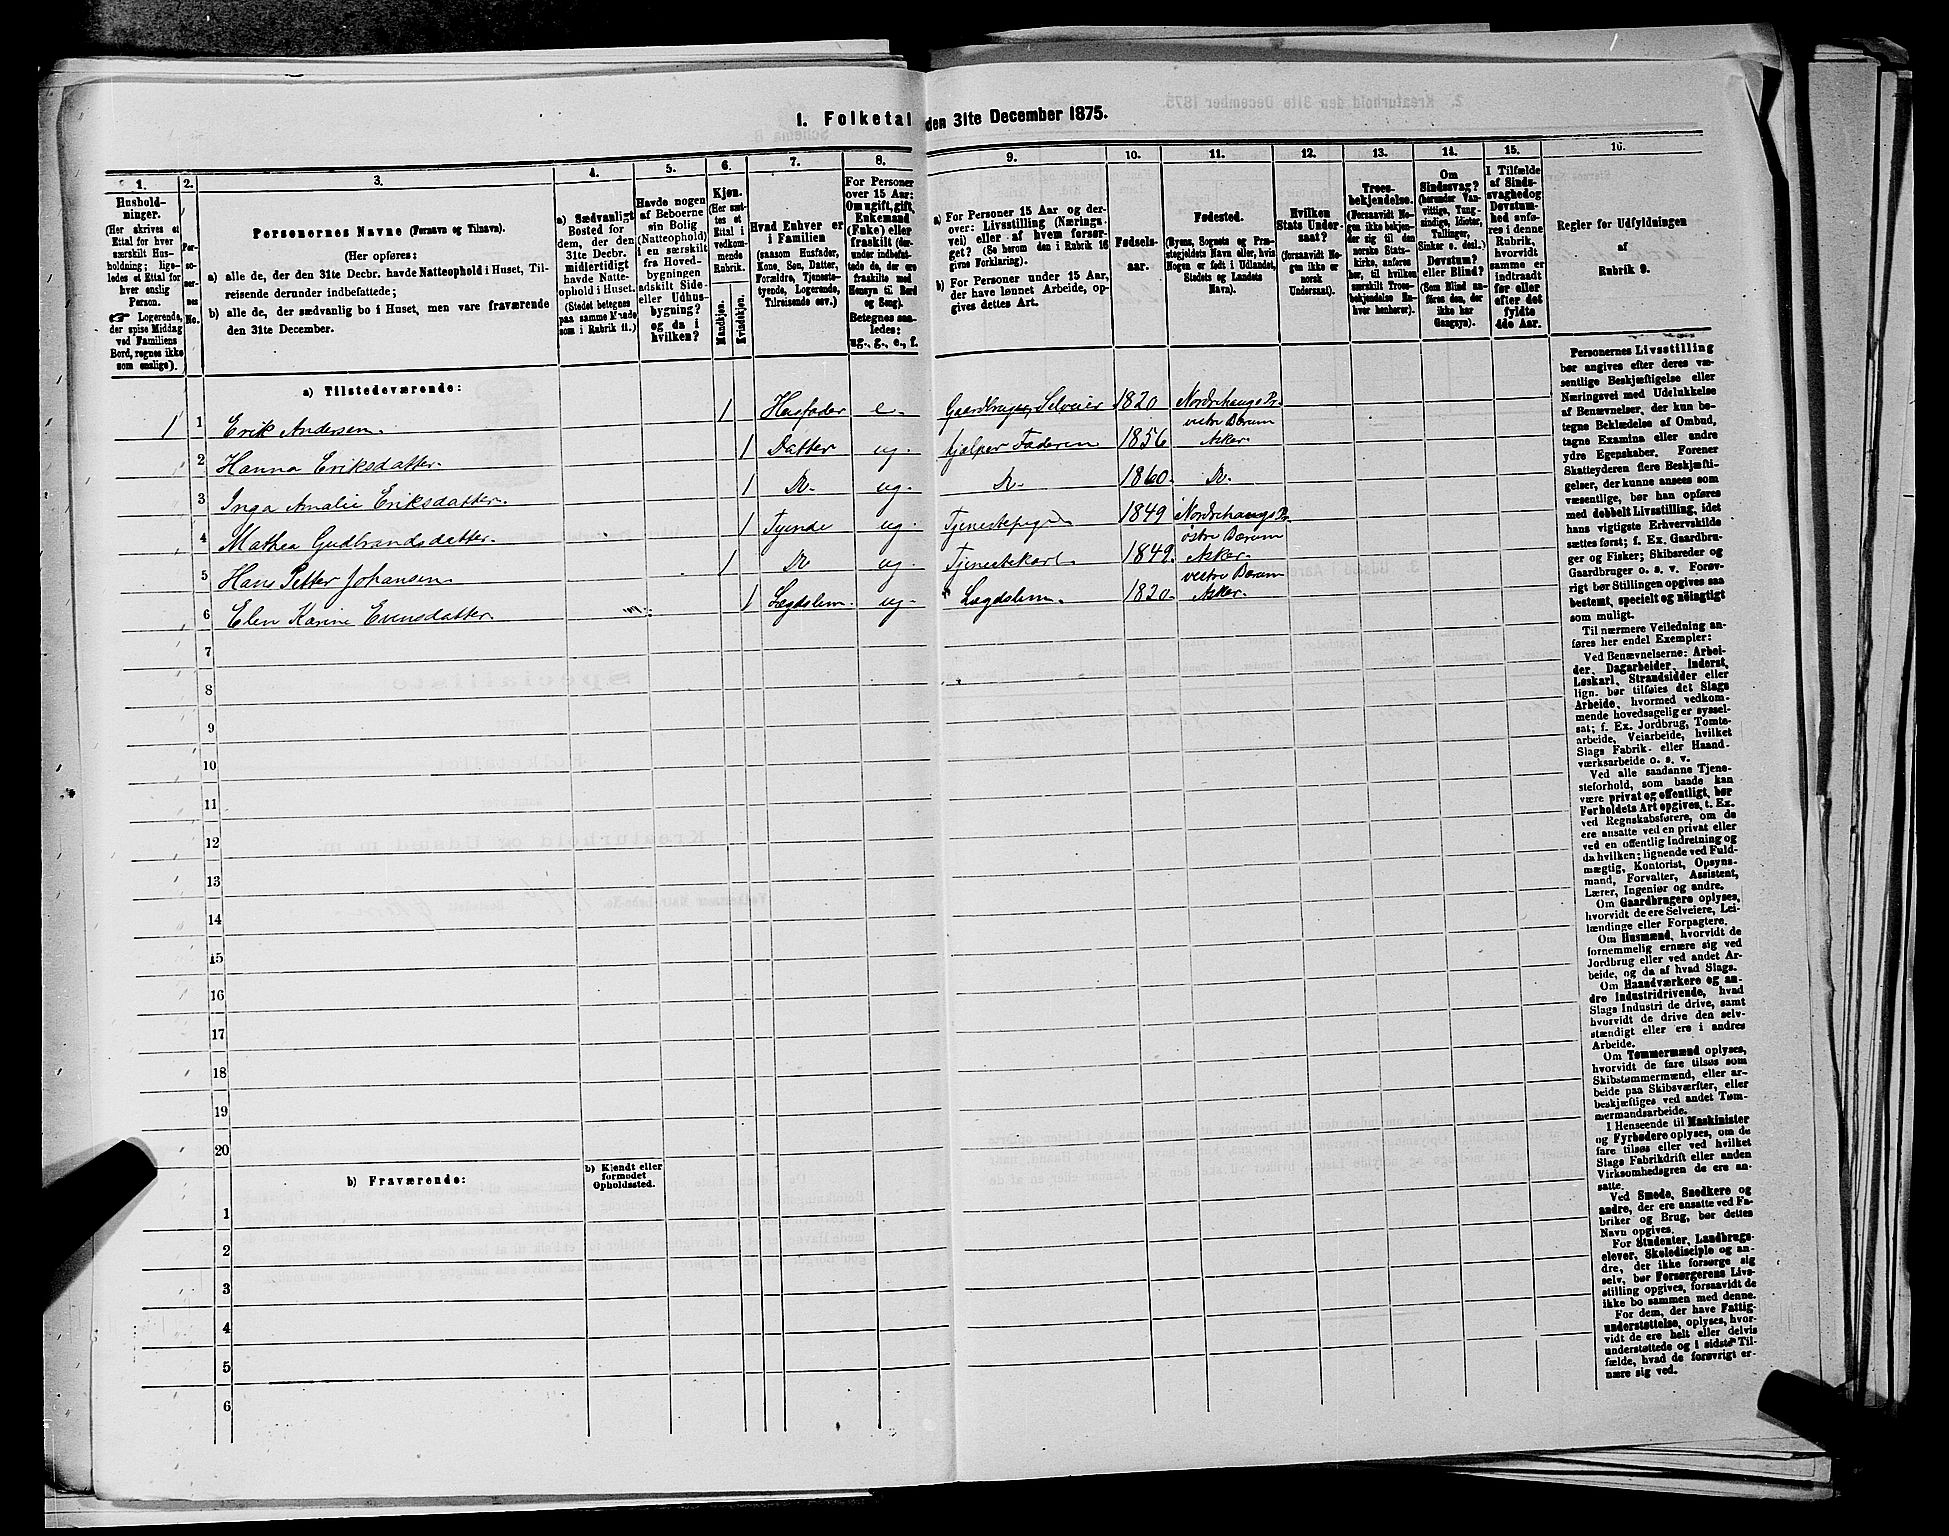 1. Folketal den 31te December 1875.
1.
2.
3.
4.
5.
6.
7.
8.
9.
10.
11.
12.
13.
14.
15.
16.
Hushold-
ninger.
(Her skrives et
Ettal for hver
særskilt Hus-
holdning; lige-
ledes et Ettal for
hver enslig
Person.
☞ Logerende,
der spise Middag
ved Familiens
Bord, regnes ikke
som enslige).
Per-
soner-
nes
No.
Personernes Navne (Fornavn og Tilnavn).
(Her opføres:
a) alle de, der den 31te Decbr. havde Natteophold i Huset, Til-
reisende derunder indbefattede;
b) alle de, der sædvanlig bo i Huset, men vare fraværende
den 31te December.
a) Sædvanligt
Bosted for
dem, der den
31te Decbr.
midlertidigt
havde Natte-
ophold i Huset.
(Stedet betegnes
paa samme Maade
som i Rubrik 11.)
Havde nogen
af Beboerne
sin Bolig
(Natteophold)
i en særskilt
fra Hoved-
bygningen
adskilt Side-
eller Udhus-
bygning?
og da i
hvilken?
Kjøn.
(Her sæt-
tes et
Ettal i
vedkom-
mende
Rubrik.
Mandkjøn.
Kvindekjøn.
Hvad Enhver er
i Familien
(saasom Husfader,
Kone, Søn, Datter,
Forældre, Tjeneste-
tyende, Logerende,
Tilreisende osv.)
For Personer
over 15 Aar:
Om ugift, gift,
Enkemand
(Enke) eller
fraskilt (der-
under indbefat-
tede de, der ere
fraskilte med
Hensyn til Bord
og Seng).
Betegnes saa-
ledes:
ug., g., e., f.
a) For Personer 15 Aar og der-
over: Livsstilling (Nærings-
vei) eller af hvem forsør-
get? (Se herom den i Rubrik 16
givne Forklaring).
b) For Personer under 15 Aar,
der have lønnet Arbeide, op-
gives dettes Art.
Fødsels-
aar.
Fødested.
(Byens, Sognets og Præ-
stegjeldets Navn eller, hvis
Nogen er født i Udlandet,
Stedets og Landets
Navn).
Hvilken
Stats Under-
saat?
(forsaavidt No-
gen ikke er
norsk
Undersaat).
Troes-
bekjendelse.
(Forsaavidt No-
gen ikke bekjen-
der sig til den
norske Stats-
kirke, anføres
her, til hvilken
særskilt Troes-
bekjendelse En-
hver henhører).
Om
Sindssvag?
(herunder Van-
vittige, Tung-
sindige, Idioter,
Tullinger,
Sinker o. desl.)
Døvstum?
eller Blind?
(Som Blind an-
føres den, der
ikke har
Gangsyn).
I Tilfælde
af Sinds-
svaghed og
Døvstum-
hed anfø-
res i denne
Rubrik,
hvorvidt
samme er
indtraadt
før eller
efter det
fyldte
4de Aar.
Regler for Udfyldningen
af
Rubrik 9.
a) Tilstedeværende:
1 1 Erik Andersen. 1 Husfader e. Gaardbruger, Selveier 1820 Nordrehaugs Pr.
2 Hanna Eriksdatter. 1 Datter ug. hjælper Faderen 1856 vestre Bærum Asker.
3 Inga Amalie Eriksdatter. 1 Do. ug. Do. 1860. Do.
4 Mathea Gudbrandsdatter. 1 Tyende ug. Tjenestepige 1849 Nordrehaugs Pr.
5 Hans Petter Johansen 1 Do. ug. Tjenestekarl. 1849. østre Bærum Asker.
6 Elen Karine Evensdatter. 1 Lægdslem. ug. Lægdslem. 1820. vestre Bærum Asker.
7
8
9
10
11
12
13
14
15
16
17
18
19
20
b) Fraværende:
b) Kjendt eller
formodet
Opholdssted.
1
2
3
4
5
6
Personernes Livsstilling
bør angives efter deres væ-
sentlige Beskjæftigelse eller
Næringsvei med Udelukkelse
af Benævnelser, der kun be-
tegne Beklædelse af Ombud,
tagne Examina eller andre
ydre Egenskaber. Forener
Skatteyderen flere Beskjæfti-
gelser, der kunne ansees som
væsentlige, bør han opføres
med dobbelt Livsstilling, idet
hans vigtigste Erhvervskilde
sættes først; f. Ex. Gaardbru-
ger og Fisker; Skibsreder og
Gaardbruger o. s. v. Forøv-
rigt bør Stillingen opgives saa
bestemt, specielt og nöiagtigt
som muligt.
Til nærmere Veiledning an-
føres her endel Exempler:
Ved Benævnelserne: Arbei-
der, Dagarbeider, Inderst,
Løskarl, Strandsidder eller
lign. bør tilføies det Slags
Arbeide, hvormed vedkom-
mende hovedsagelig er syssel-
sat; f. Ex. Jordbrug, Tomte-
arbeide, Veiarbeide, hvilket
Slags Fabrik- eller Haand-
værksarbeide o. s. v.
Ved alle saadanne Tjene-
steforhold, som baade kan
være privat og offentligt, bør
Forholdets Art opgives, t. Ex.
ved Regnskabsførere, om de
ere ansatte ved en privat eller
ved en offentlig Indretning og
da hvilken; lignende ved Fuld-
mægtig, Kontorist, Opsyns-
mand, Forvalter, Assistent,
Lærer, Ingeniør og andre.
Om Gaardbrugere oplyses,
hvorvidt de ere Selveiere, Lei-
lændinge eller Forpagtere.
Om Husmænd, hvorvidt de
fornemmelig ernære sig ved
Jordbrug eller ved andet Ar-
beide, og da af hvad Slags.
Om Haandværkere og an-
dre Industridrivende, hvad
Slags Industri de drive, samt
hvorvidt de drive den selv-
stændigt eller ere i andres
Arbeide.
Om Tømmermænd oplyses,
hvorvidt de fare tilsøs som
Skibstømmermænd, eller ar-
beide paa Skibsværfter, eller
beskjæftiges ved andet Tøm-
mermandsarbeide.
I Henseende til Maskinister
og Fyrbødere oplyses, om de
fare tilsøs eller ved hvilket
Slags Fabrikdrift eller anden
Virksomhedsgren de ere an-
satte.
Ved Smede, Snedkere og
andre, der ere ansatte ved Fa-
briker og Brug, bør dettes
Navn opgives.
For Studenter, Landbrugs-
elever, Skoledisciple og an-
dre, der ikke forsørge sig
selv, bør Forsørgerens Livs-
stilling opgives, forsaavidt de
ikke bo sammen med denne.
For dem, der have Fattig-
understøttelse, oplyses, hvor-
vidt de ere helt eller delvis
understøttede og i sidste Til-
fælde, hvad de forøvrigt er-
nære sig ved.